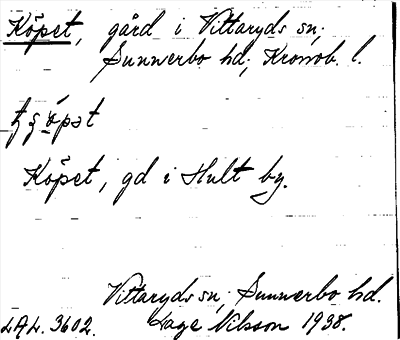 Köpet, gård i Vittaryds sn;
Sunnerbo hd; Kronob. l.
Köpet, gd i Hult by.
Vittaryds sn; Sunnerbo hd.
LAL. 3602. Tage Nilsson 1938.